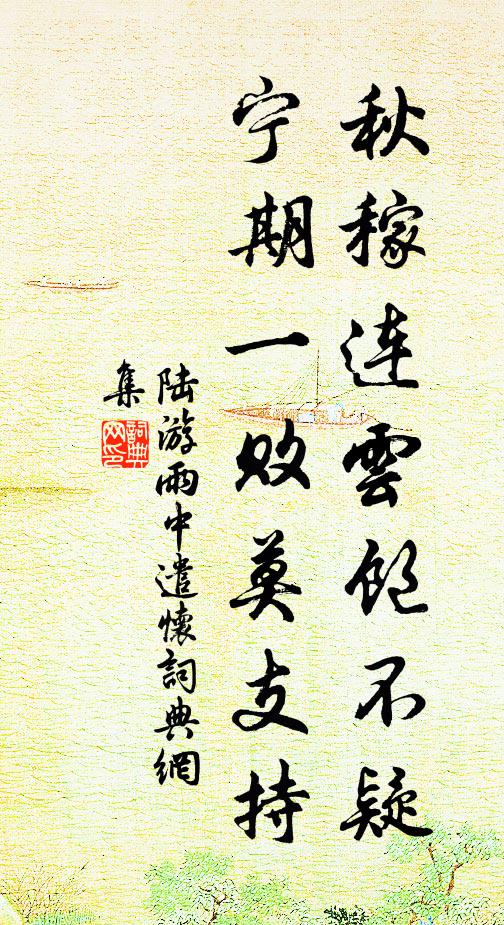 秋稼连雲饱不疑
宁期一败莫支持
陆游雨中遣懷詞典網
集
詞典网印